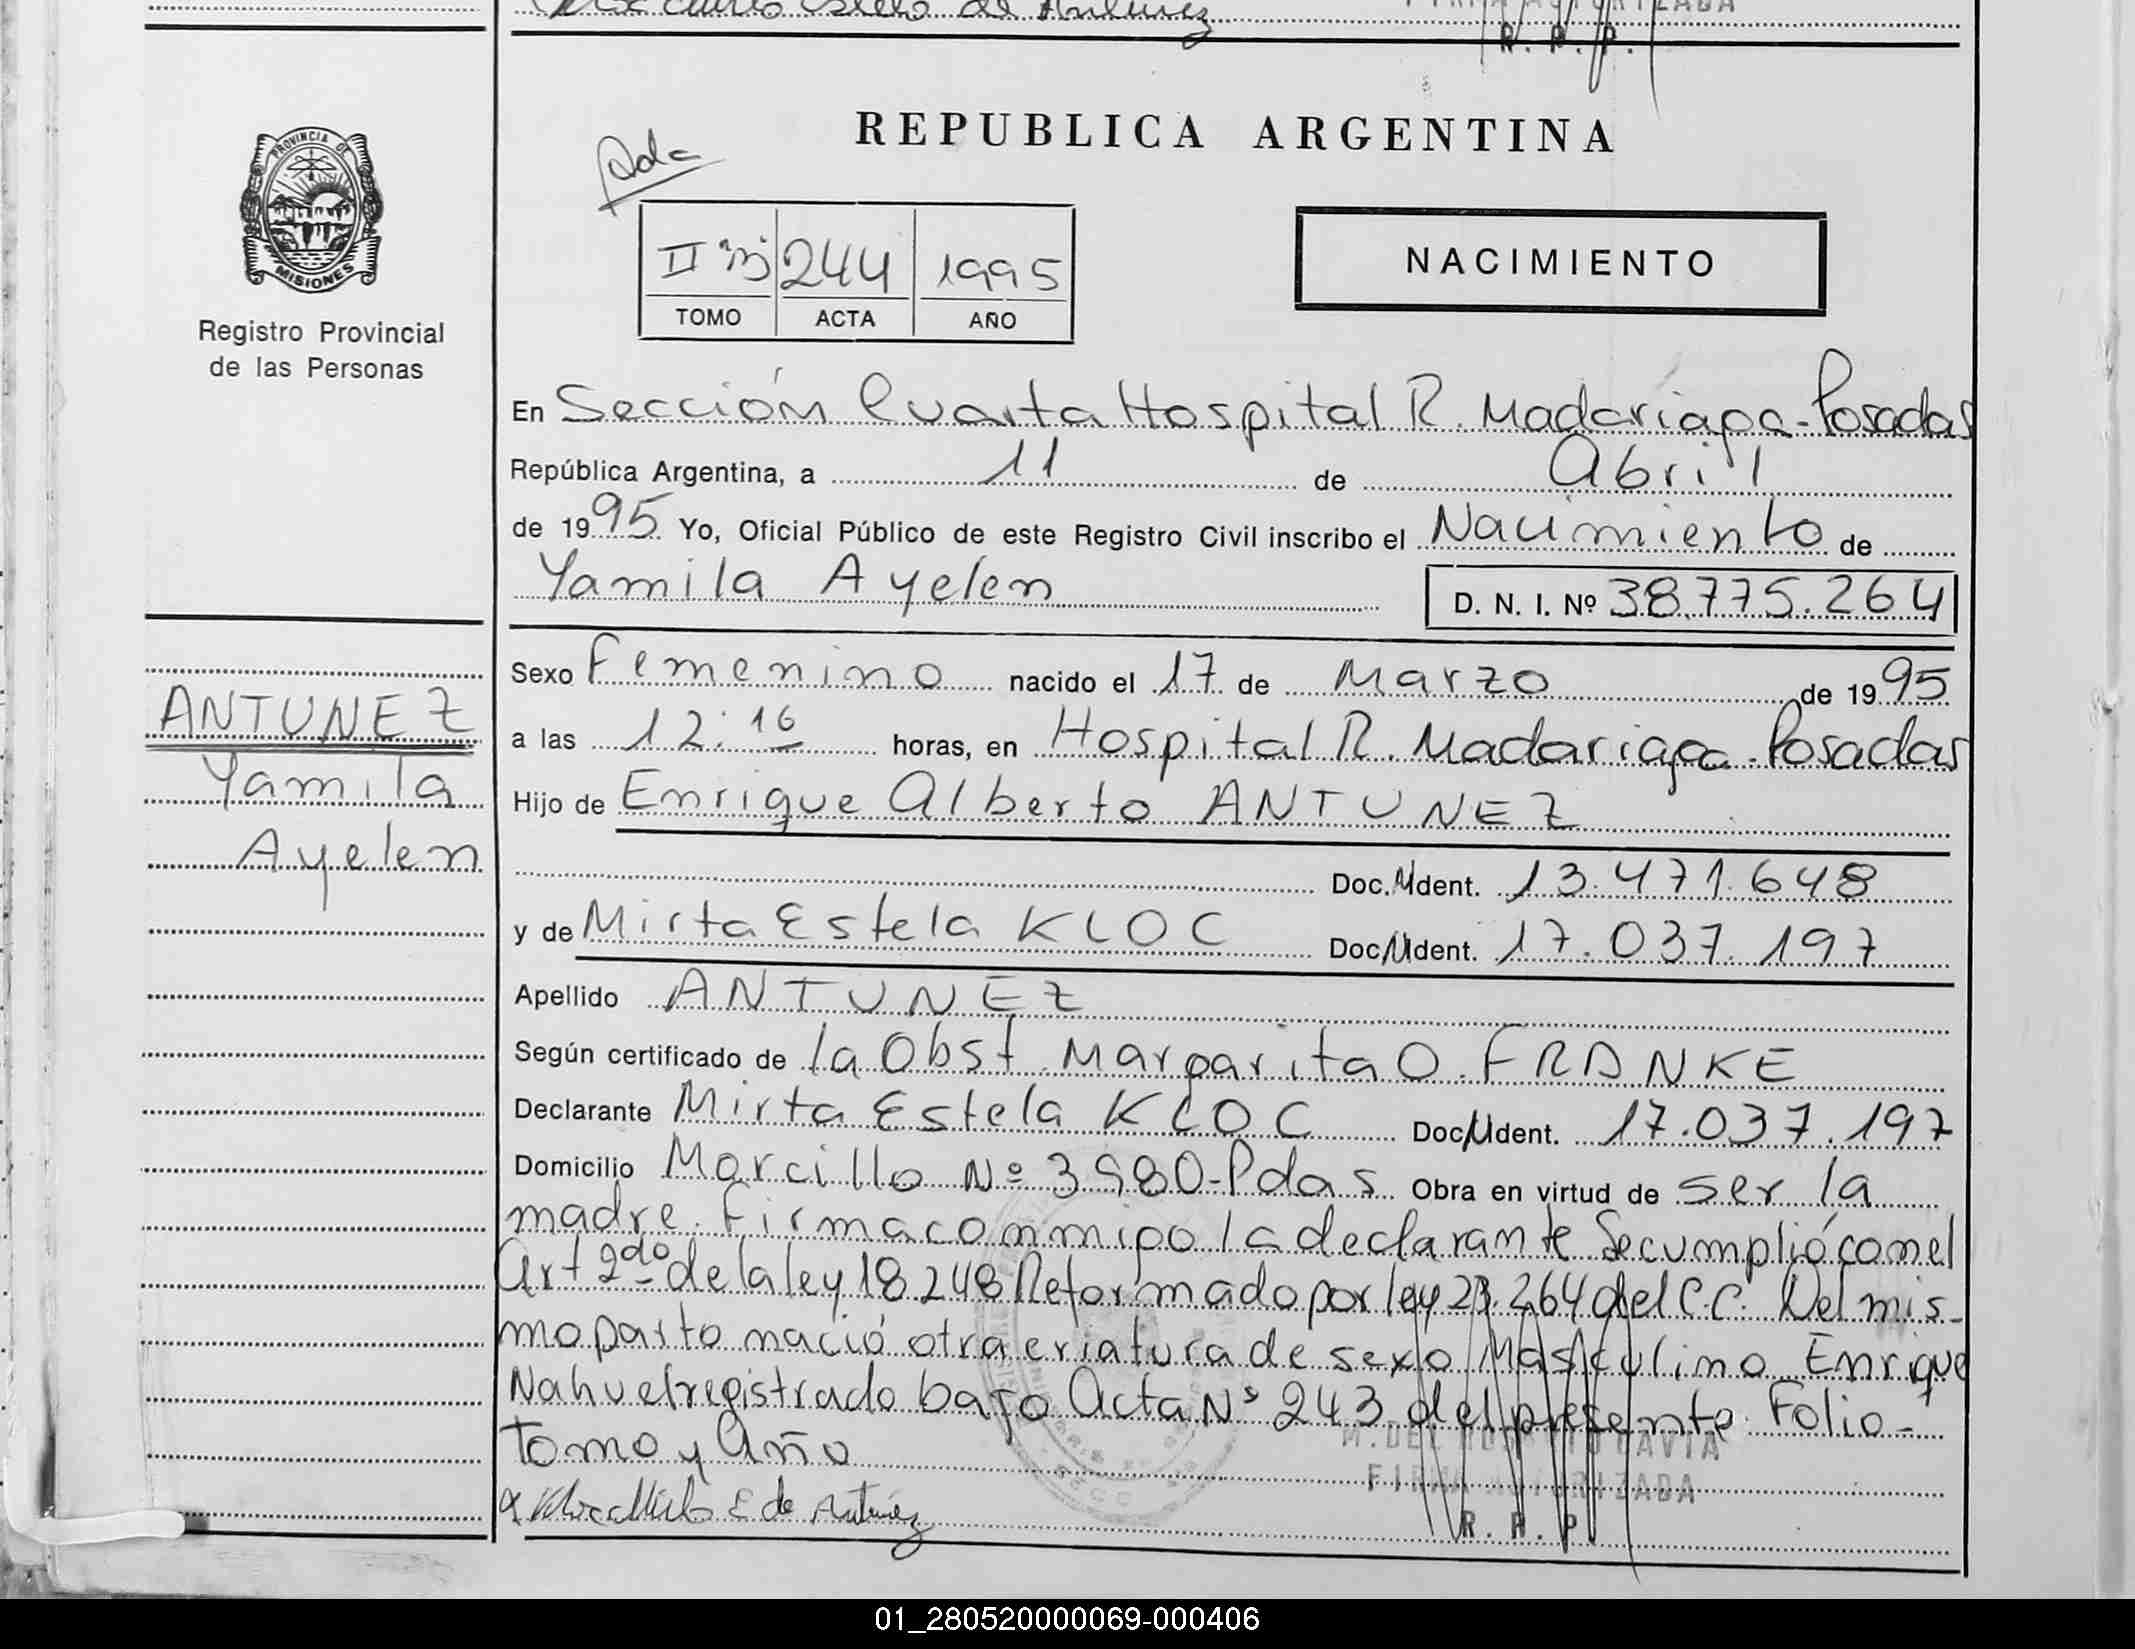 R. P. P.
REPUBLICA ARGENTINA
PROVINCIA DE
MISIONES
Registro Provincial
de las Personas
II 244 1995
TOMO ACTA AÑO
NACIMIENTO
En Sección Cuarta Hospital R. Madariaga-Posadas
República Argentina, a 11 de Abril
de 1995 Yo, Oficial Público de este Registro Civil inscribo el Nacimiento de
Yamila Ayelen D. N. I. Nº 38.775.264
Sexo Femenino nacido el 17 de Marzo de 1995
a las 12:16 horas, en Hospital R. Madariaga-Posadas
Hijo de Enrique Alberto ANTUNEZ
Doc. Ident. 13.471.648
y de Mirta Estela KLOC Doc. Ident. 17.037.197
Apellido ANTUNEZ
Según certificado de la Obst. Margarita O. FRANKE
Declarante Mirta Estela KLOC Doc. Ident. 17.037.197
Domicilio Morcillo Nº 3980-Pdas Obra en virtud de ser la
madre. Firma conmigo la declarante Se cumplió con el
Art 2do de la ley 18248 Reformado por ley 23.264 del C.C. Del mis-
mo parto nació otra criatura de sexo Masculino Enrique
Nahuel registrado bajo Acta Nº 243 del presente Folio-
Tomo y Año
FIRMA AUTORIZADA
R. P. P.
E de Antúnez
ANTUNEZ
Yamila
Ayelen
01_280520000069-000406